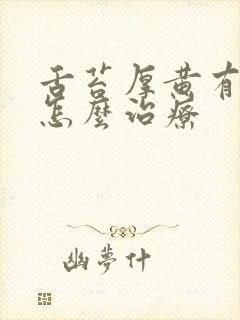 舌苔厚黄有
怎麼治療
幽夢什